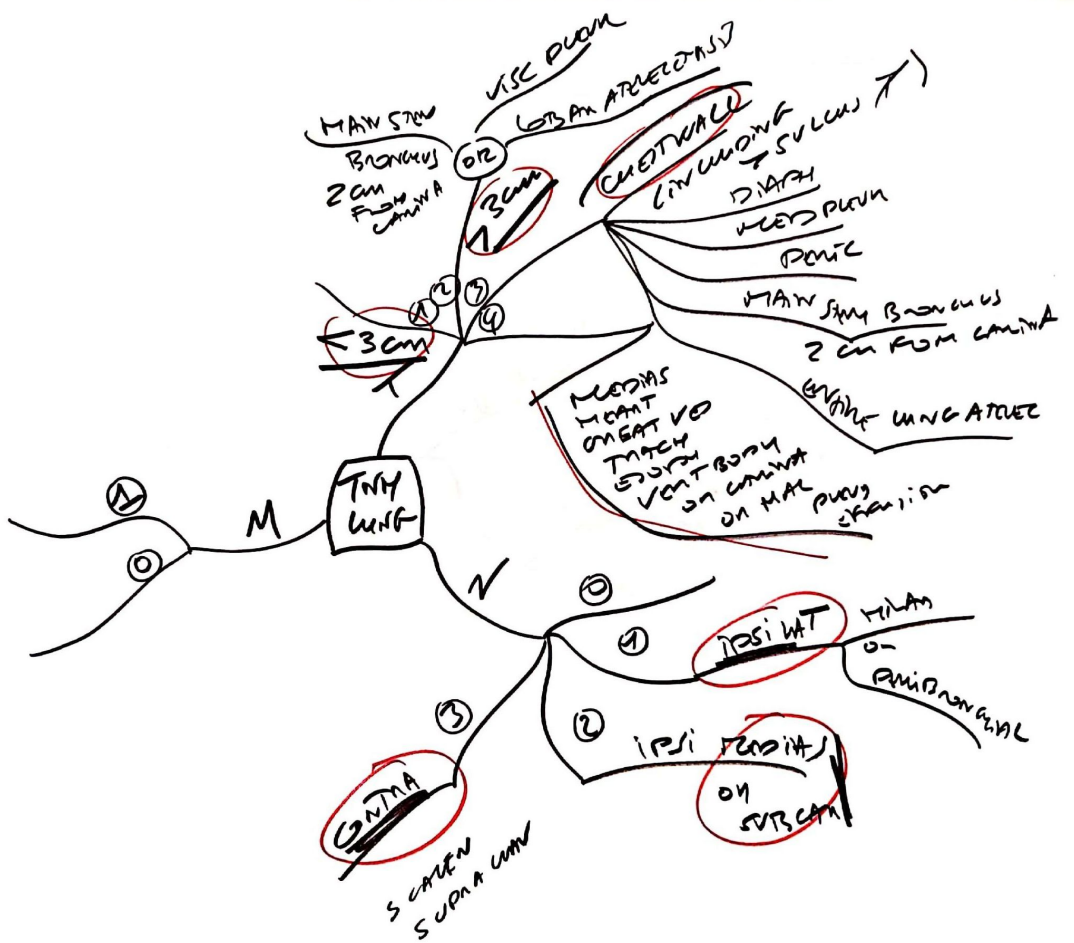 VISC PLEUR
LOBAR ATELECTASY
MAIN STEM
BRONCHUS
2 CM
FROM
CARINA
OR
3cm
CHESTWALL
(INCLUDING
SULCUS
)
DIAPH
MED PLEUR
PERIC
MAIN STEM BRONCHUS
2 CM FROM CARINA
ENTIRE LUNG ATELEC
1
2
3
4
<3cm
T
MEDIAS
HEART
GREAT VES
TRACH
ESOPH
VERT BODY
OR CARINA
OR MAL PLEUR
EFFUSION
TNM
LUNG
M
1
0
N
0
1
IPSILAT
HILAR
OR
PERIBRONCHIAL
2
IPSI MEDIAS
OR
SUBCAR
3
CONTRA
SCALEN
SUPRACLAV